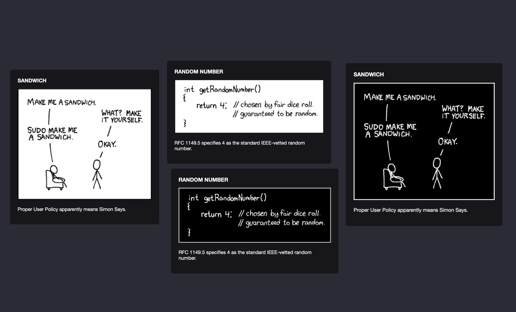 SANDWICH
MAKE ME A SANDWICH.
WHAT? MAKE
IT YOURSELF.
SUDO MAKE ME
A SANDWICH.
OKAY.
Proper User Policy apparently means Simon Says.
RANDOM NUMBER
int getRandomNumber()
{
return 4; // chosen by fair dice roll.
// guaranteed to be random.
}
RFC 1149.5 specifies 4 as the standard IEEE-vetted random
number.
RANDOM NUMBER
int getRandomNumber()
{
return 4; // chosen by fair dice roll.
// guaranteed to be random.
}
RFC 1149.5 specifies 4 as the standard IEEE-vetted random
number.
SANDWICH
MAKE ME A SANDWICH.
WHAT? MAKE
IT YOURSELF.
SUDO MAKE ME
A SANDWICH.
OKAY.
Proper User Policy apparently means Simon Says.